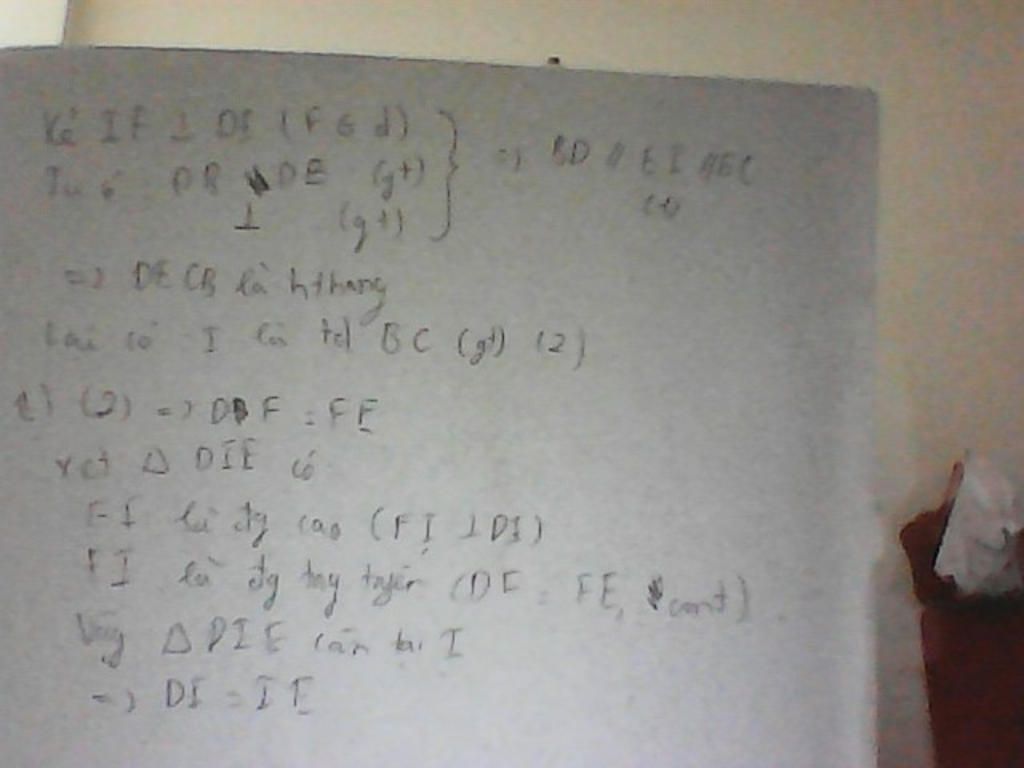 Kẻ IF ⊥ DE (F ∈ d)
DB DE (gt) } => BD // EI // EC
⊥ (gt) (1)
=> DECB là hthang
Lại có I là tđ BC (gt) (2)
1) (2) => DF = FE
xét Δ DIE có
FI là đg cao (FI ⊥ DI)
FI là đg tuyến (DF = FE, cmt)
Vậy Δ DIE cân tại I
=> DI = IE